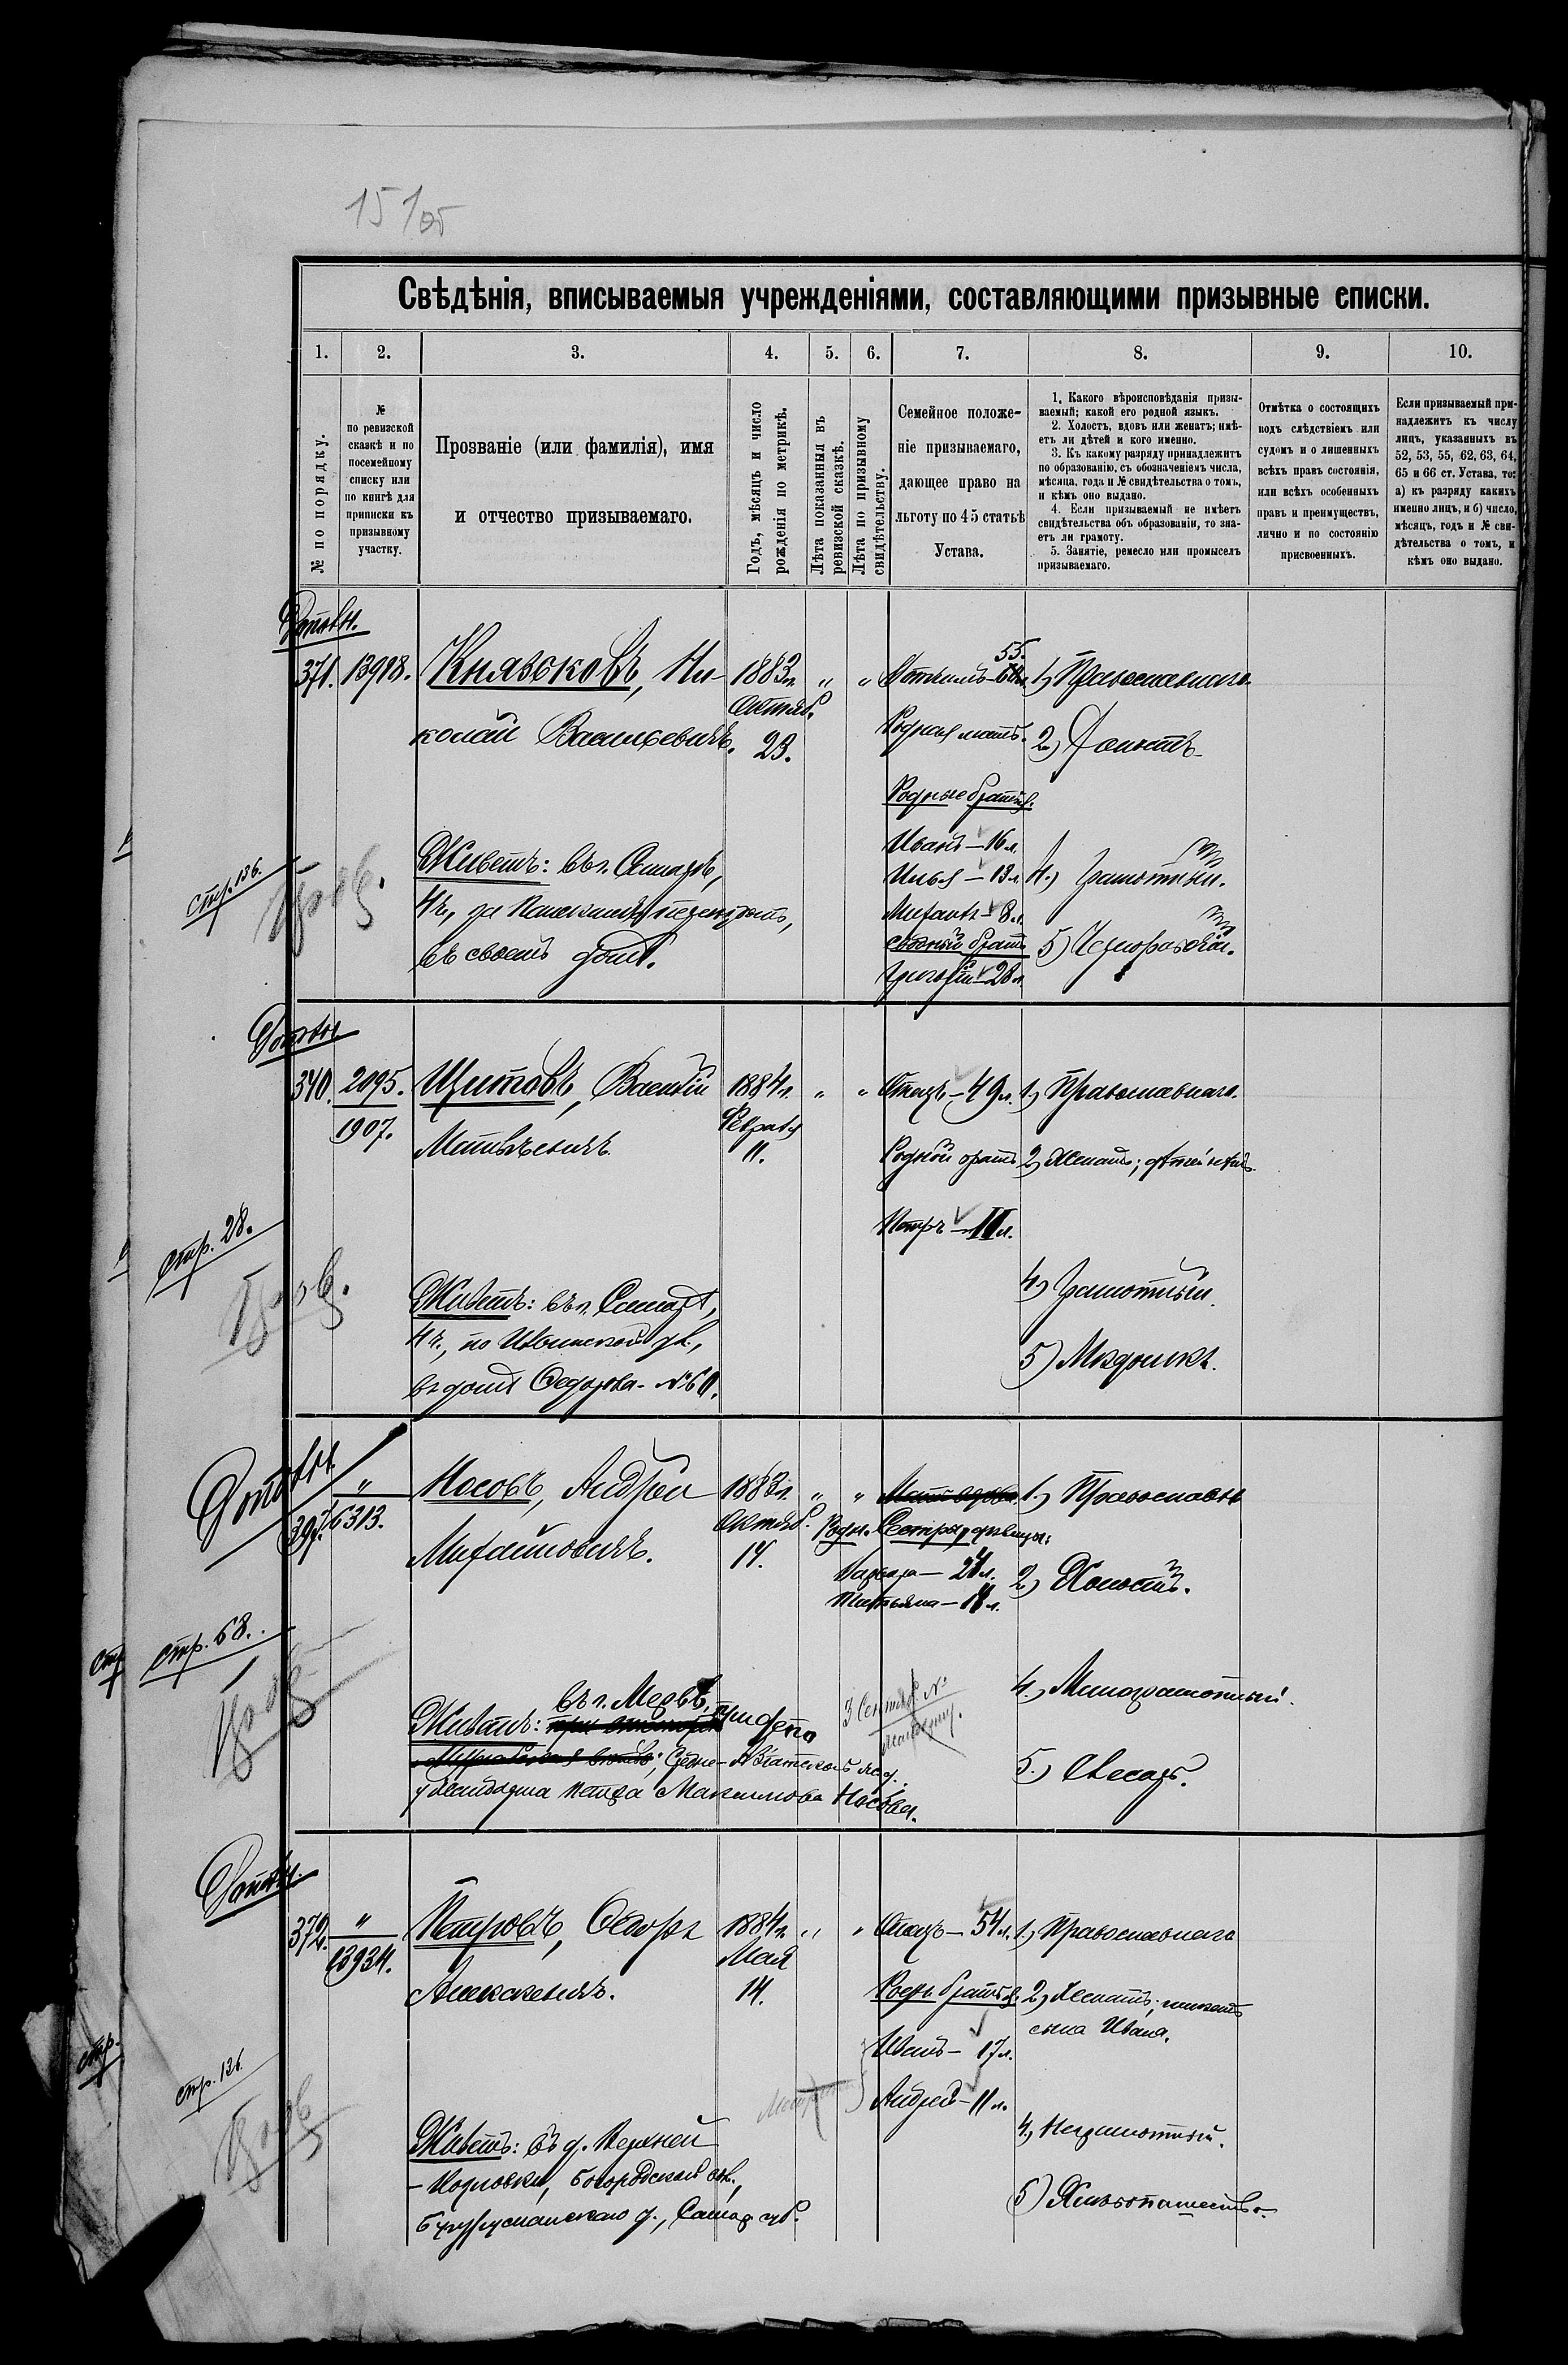 15/об
Свѣдѣнія, вписываемыя учрежденіями, составляющими призывные списки.
1. 2. 3. 4. 5. 6. 7. 8. 9. 10.
№ по порядку.
№
по ревизской
сказкѣ и по
посемейному
списку или
по книгѣ для
приписки къ
призывному
участку.
Прозваніе (или фамилія), имя
и отчество призываемаго.
Годъ, мѣсяцъ и число
рожденія по метрикѣ.
Лѣта показанныя въ
ревизской сказкѣ.
Лѣта по призывному
свидѣтельству.
Семейное положе-
ніе призываемаго,
дающее право на
льготу по 45 статьѣ
Устава.
1. Какого вѣроисповѣданія призы-
ваемый; какой его родной языкъ.
2. Холостъ, вдовъ или женатъ; имѣ-
етъ ли дѣтей и кого именно.
3. Къ какому разряду принадлежитъ
по образованію, съ обозначеніемъ числа,
мѣсяца, года и № свидѣтельства о томъ,
и кѣмъ оно выдано.
4. Если призываемый не имѣетъ
свидѣтельства объ образованіи, то зна-
етъ ли грамоту.
5. Занятіе, ремесло или промыселъ
призываемаго.
Отмѣтка о состоящихъ
подъ слѣдствіемъ или
судомъ и о лишенныхъ
всѣхъ правъ состоянія,
или всѣхъ особенныхъ
правъ и преимуществъ,
лично и по состоянію
присвоенныхъ.
Если призываемый при-
надлежитъ къ числу
лицъ, указанныхъ въ
52, 53, 55, 62, 63, 64,
65 и 66 ст. Устава, то:
а) къ разряду какихъ
именно лицъ, и б) число,
мѣсяцъ, годъ и № сви-
дѣтельства о томъ, и
кѣмъ оно выдано.
371. 13918. Князьковъ, Ни-
колай Васильевичъ.
1883г.
Октяб.
23.
" "
Отчимъ 55.
Родная мать.
Родные братья:
Иванъ – 16 л.
Илья – 13 л.
Михаилъ – 8 л.
сводный братъ
Григорій – 28 л.
1) Православнаго
2) Холостъ
4.) Грамотный.
5) Чернорабочій.
Живетъ: въ г. Самарѣ,
4 ч.,
въ своемъ домѣ.
стр. 136.
Пров.
340. 2095.
1907.
Щитовъ, Василій
Матвѣевичъ.
1884г.
Февраля
11.
" "
Отецъ – 49 л.
Родной братъ
Петръ – 11 л.
1) Православнаго.
2) Женатъ; дѣтей нѣтъ
4) Грамотный.
5)
Живетъ: въ г. Самарѣ,
4 ч., по Ильинской ул.,
въ домѣ Федорова – №60.
стр. 28.
Пров.
397. "
6313.
Носовъ, Андрей
Михайловичъ.
1883г.
Октяб.
14.
" "
Родн. Сестры дѣвицы:
Варвара – 24 л.
Татьяна – 18 л.
1.) Православн
2) Холостъ.
4.) Малограмотный.
5.) Слесарь.
въ г. Мервѣ,
Живетъ: при депо
Средне-Азіатской ж. д.
Петра Максимова Носова.
стр. 68.
Пров.
372. "
13934.
Петровъ, Ѳедоръ
Алексѣевичъ.
1884г.
Мая
14.
" "
Отецъ – 54 л.
Родн. братья:
Иванъ – 17 л.
Андрей – 11 л.
1.) Православнаго
2) Женатъ; имѣетъ
сына Ивана.
4.) Неграмотный.
5) Хлѣбопашество
Живетъ: въ д. Верхней
Бугурусланскаго у., Самар. губ.
стр. 126.
Пров.